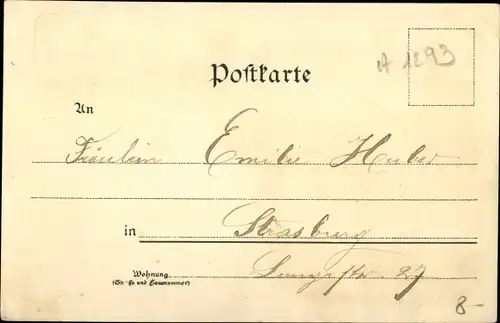 A 1293
Postkarte
An
Fräulein Emilie Huber
in Strasburg
Wohnung
(Straße und Hausnummer)
Langestr. 27
8-